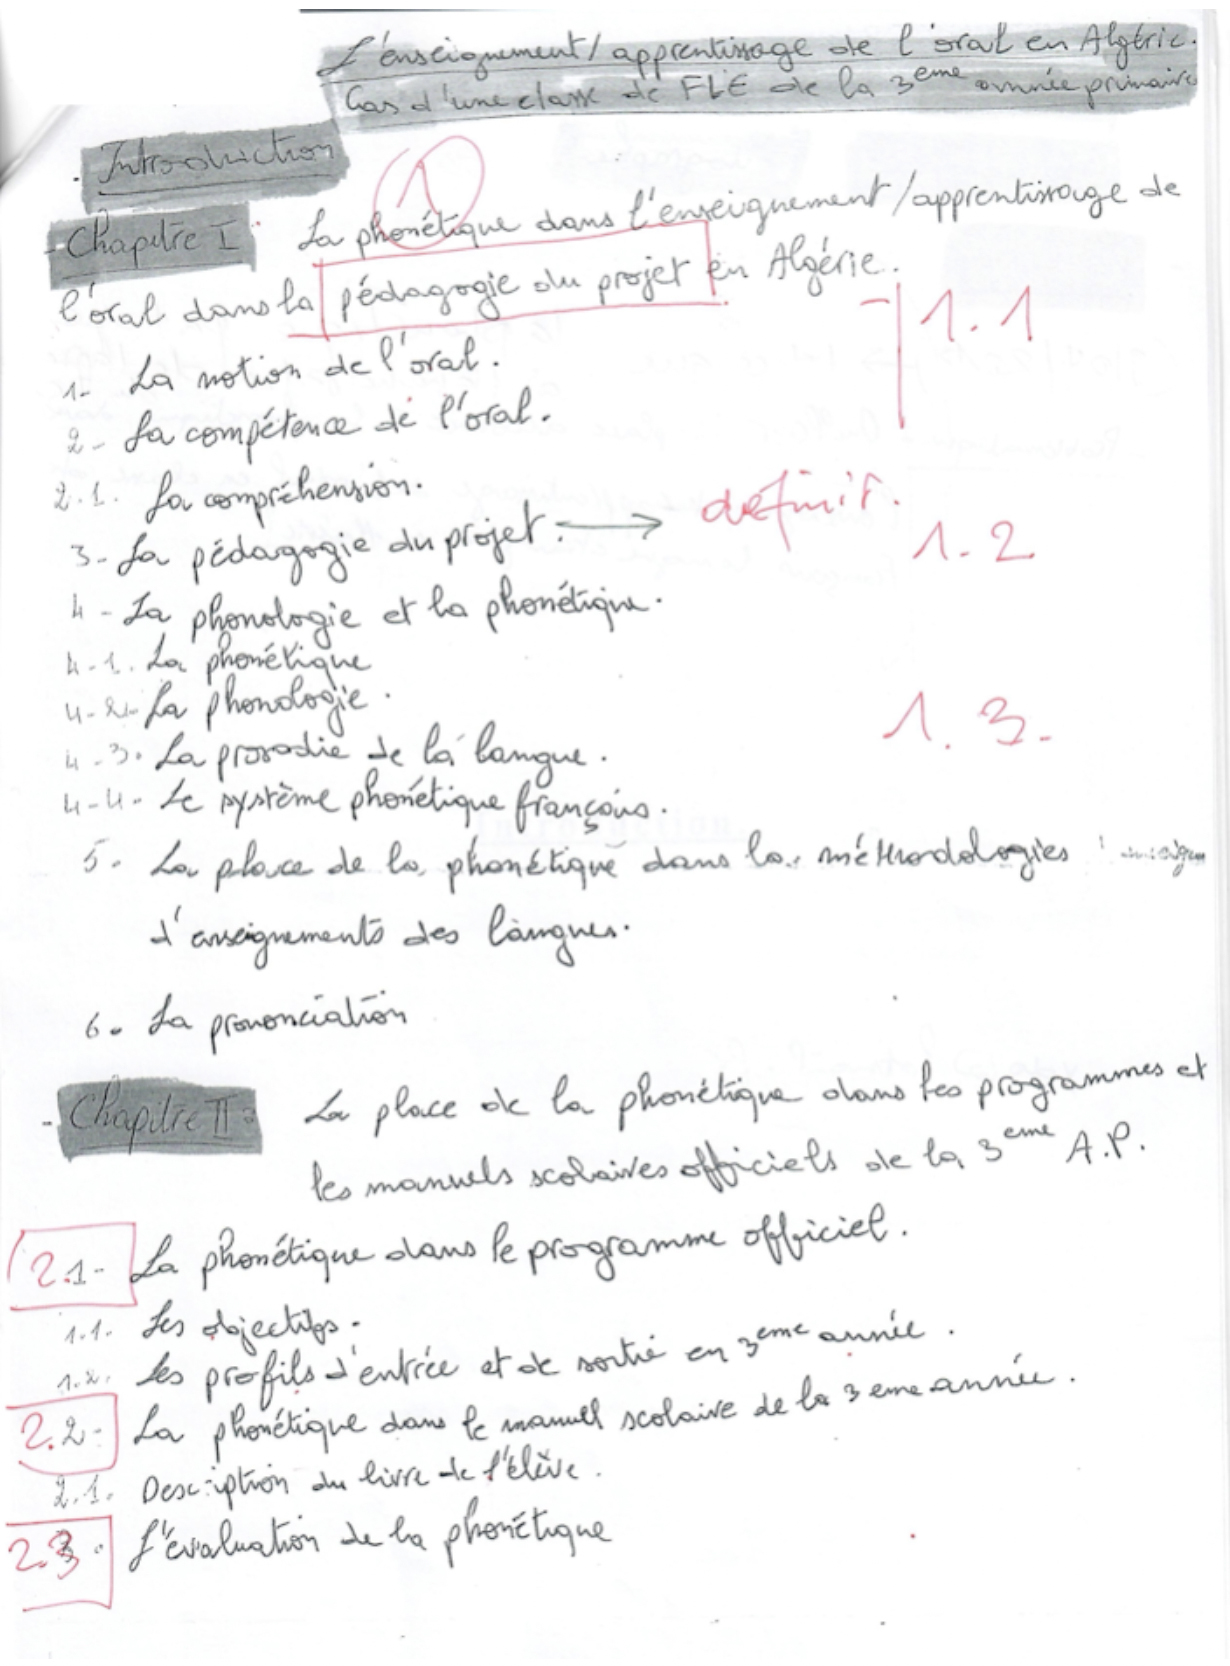 L'enseignement/apprentissage de l'oral en Algérie.
Cas d'une classe de FLE de la 3eme année primaire
. Introduction
1
- Chapitre I : La phonétique dans l'enseignement/apprentissage de
l'oral dans la pédagogie du projet en Algérie.
1.1
1- La notion de l'oral.
2- La compétence de l'oral.
2.1. La compréhension.
définir.
3- La pédagogie du projet. →
1.2
4- La phonologie et la phonétique.
4-1. La phonétique
4-2- La phonologie.
1.3.
4-3. La prosodie de la langue.
4-4- Le système phonétique français.
5. La place de la phonétique dans la méthodologies
d'enseignements des langues.
6. La prononciation
- Chapitre II : La place de la phonétique dans les programmes et
les manuels scolaires officiels de la 3eme A.P.
2.1- La phonétique dans le programme officiel.
1.1. Les objectifs.
1.2. Les profils d'entrée et de sortie en 3eme année.
2.2- La phonétique dans le manuel scolaire de la 3eme année.
2.1. Description du livre de l'élève.
2.3. L'évaluation de la phonétique